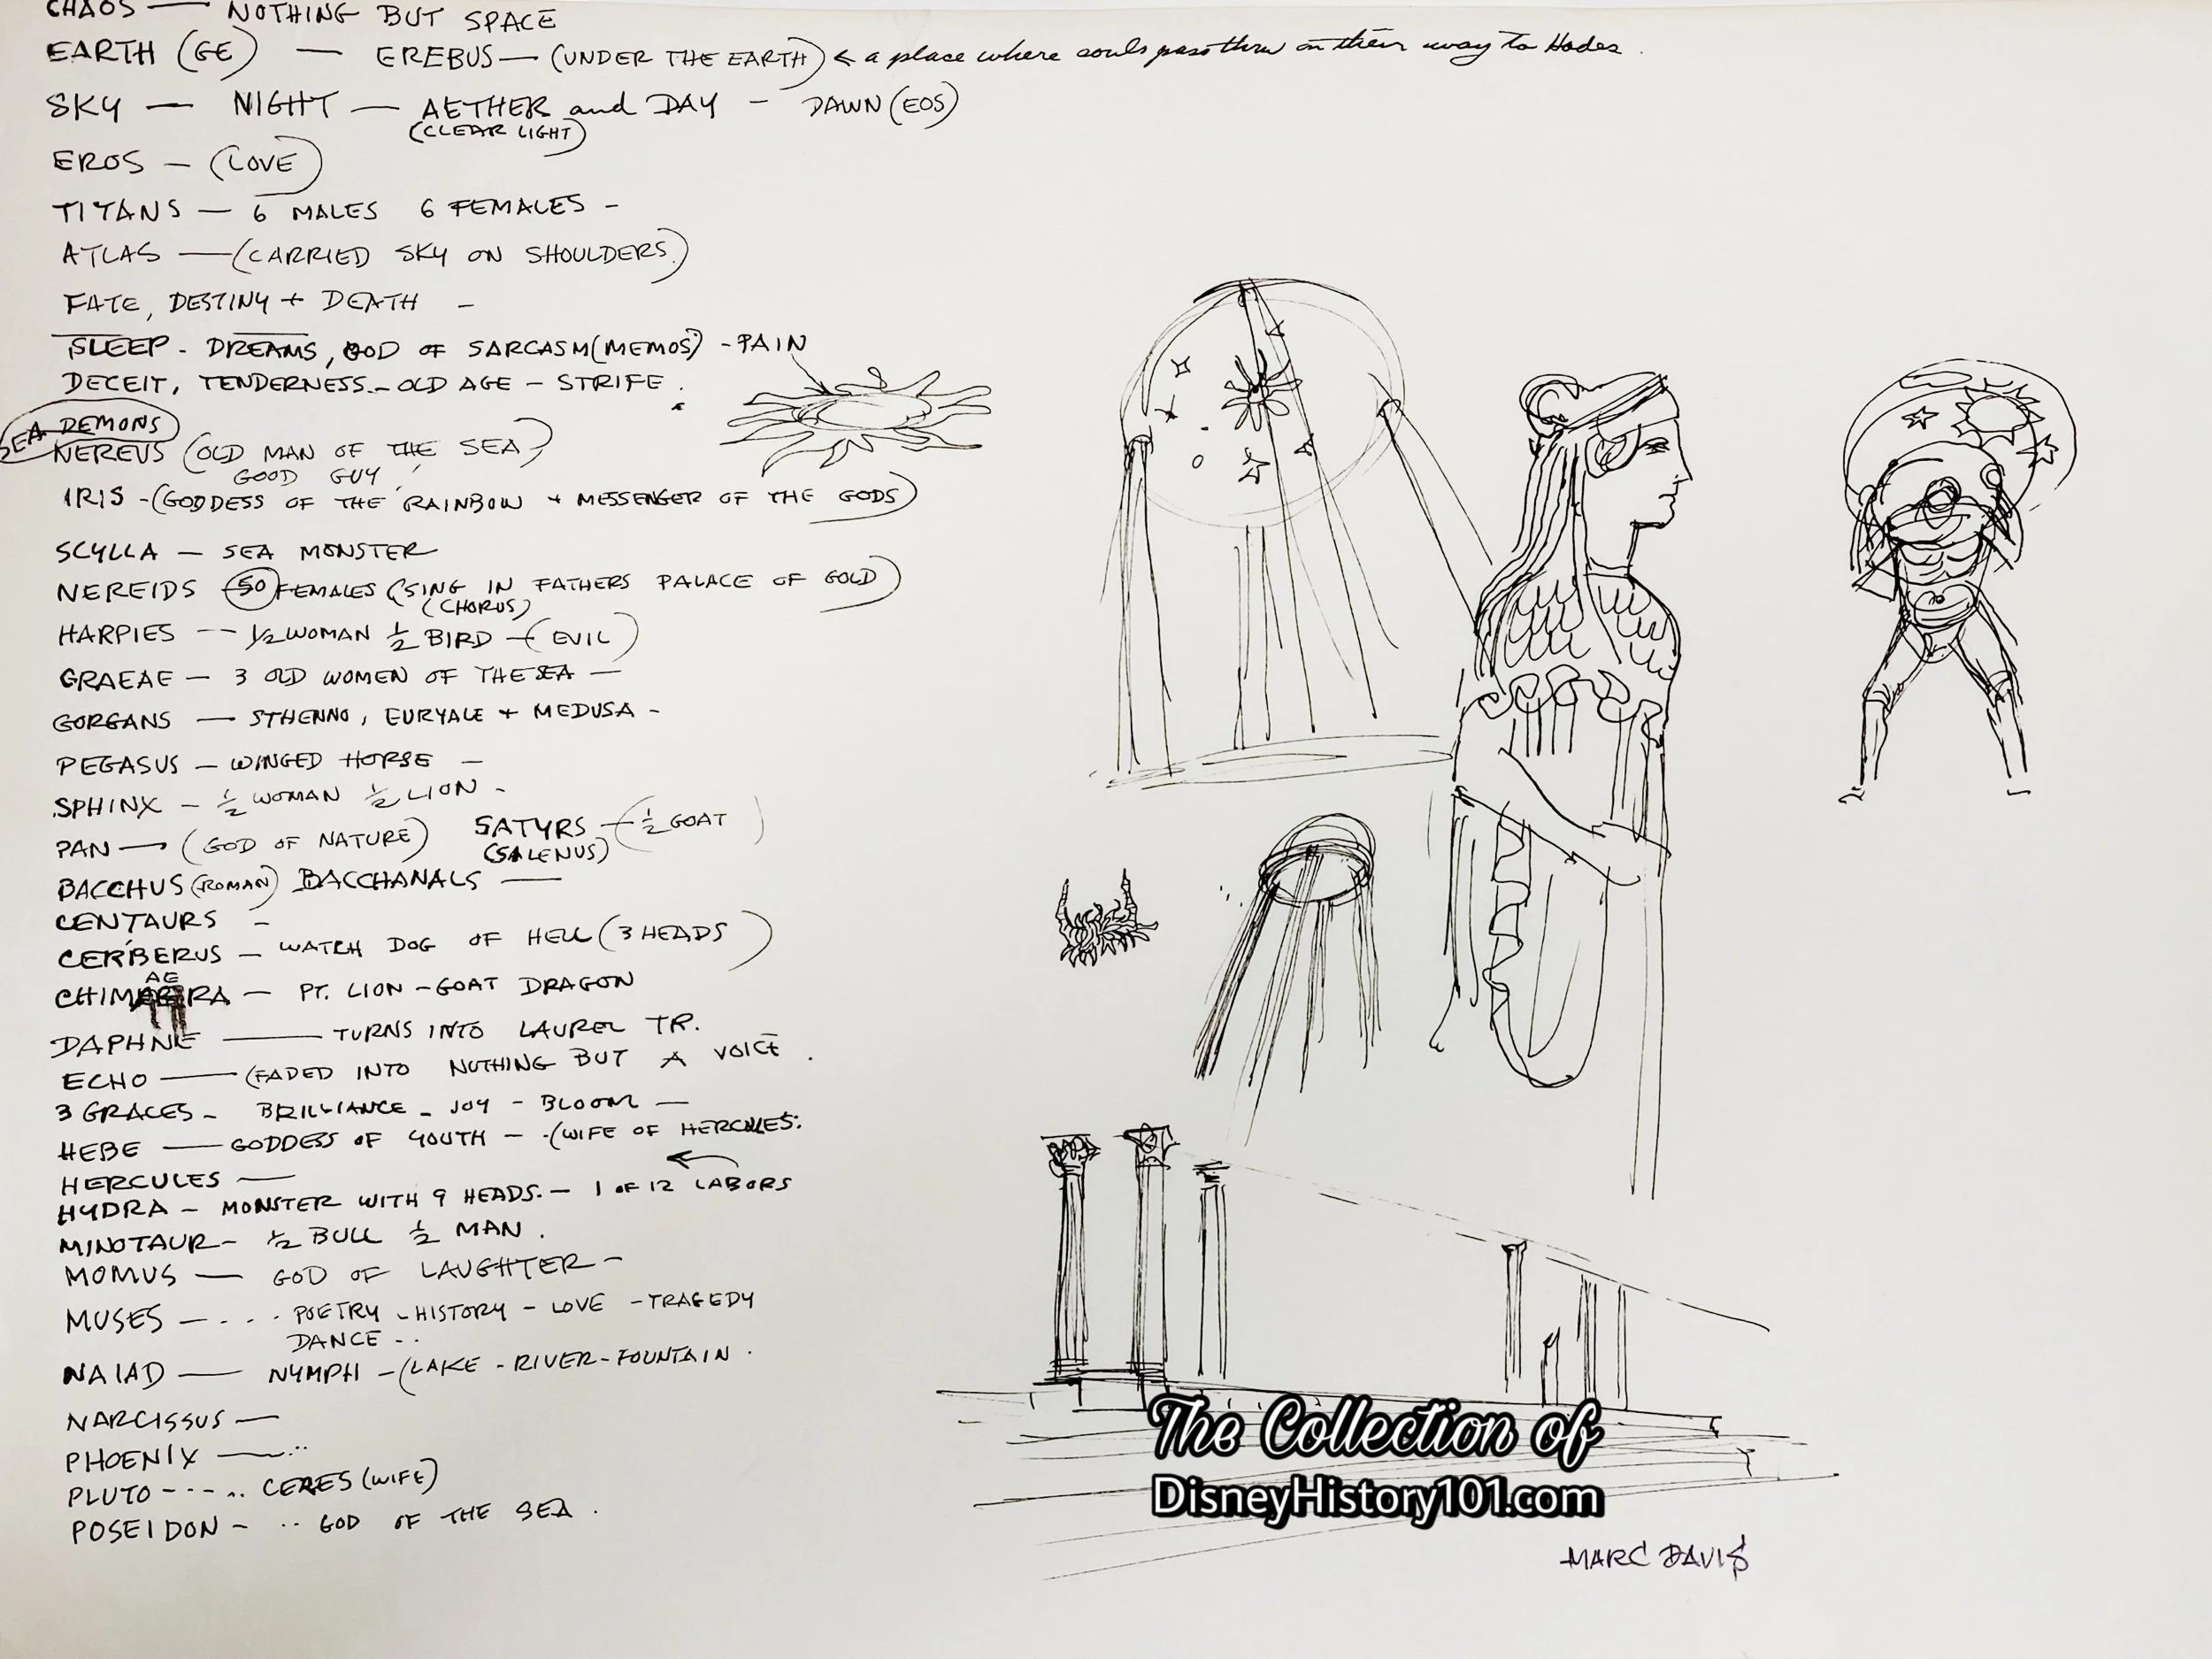 CHAOS — NOTHING BUT SPACE
EARTH (GE) — EREBUS — (UNDER THE EARTH) ← a place where souls pass thru on their way to Hades.
SKY — NIGHT — AETHER and DAY - DAWN (EOS)
(CLEAR LIGHT)
EROS — (LOVE)
TITANS — 6 MALES 6 FEMALES -
ATLAS — (CARRIED SKY ON SHOULDERS.)
FATE, DESTINY + DEATH -
SLEEP - DREAMS, GOD OF SARCASM (MEMOS) - PAIN
DECEIT, TENDERNESS - OLD AGE - STRIFE.
SEA DEMONS
NEREUS (OLD MAN OF THE SEA)
GOOD GUY!
IRIS - (GODDESS OF THE RAINBOW + MESSENGER OF THE GODS)
SCYLLA — SEA MONSTER
NEREIDS - 50 FEMALES (SING IN FATHERS PALACE OF GOLD)
(CHORUS)
HARPIES -- 1/2 WOMAN 1/2 BIRD - (EVIL)
GRAEAE — 3 OLD WOMEN OF THE SEA —
GORGANS — STHENNO, EURYALE + MEDUSA -
PEGASUS — WINGED HORSE —
SPHINX - 1/2 WOMAN 1/2 LION -
PAN — (GOD OF NATURE) SATYRS - (1/2 GOAT)
(SALENUS)
BACCHUS (ROMAN) BACCHANALS —
CENTAURS -
CERBERUS — WATCH DOG OF HELL (3 HEADS)
AE
CHIMERA — PT. LION - GOAT DRAGON
DAPHNE — TURNS INTO LAUREL TR.
ECHO — (FADED INTO NOTHING BUT A VOICE.
3 GRACES - BRILLIANCE - JOY - BLOOM —
HEBE — GODDESS OF YOUTH - (WIFE OF HERCULES.
HERCULES — ←
HYDRA - MONSTER WITH 9 HEADS. - 1 OF 12 LABORS
MINOTAUR - 1/2 BULL 1/2 MAN.
MOMUS — GOD OF LAUGHTER -
MUSES - . . . POETRY - HISTORY - LOVE - TRAGEDY
DANCE - ..
NAIAD — NYMPH - (LAKE - RIVER - FOUNTAIN.
NARCISSUS —
PHOENIX — ...
PLUTO - - - .. CERES (WIFE)
POSEIDON - .. GOD OF THE SEA.
The Collection of
DisneyHistory101.com
MARC DAVIS